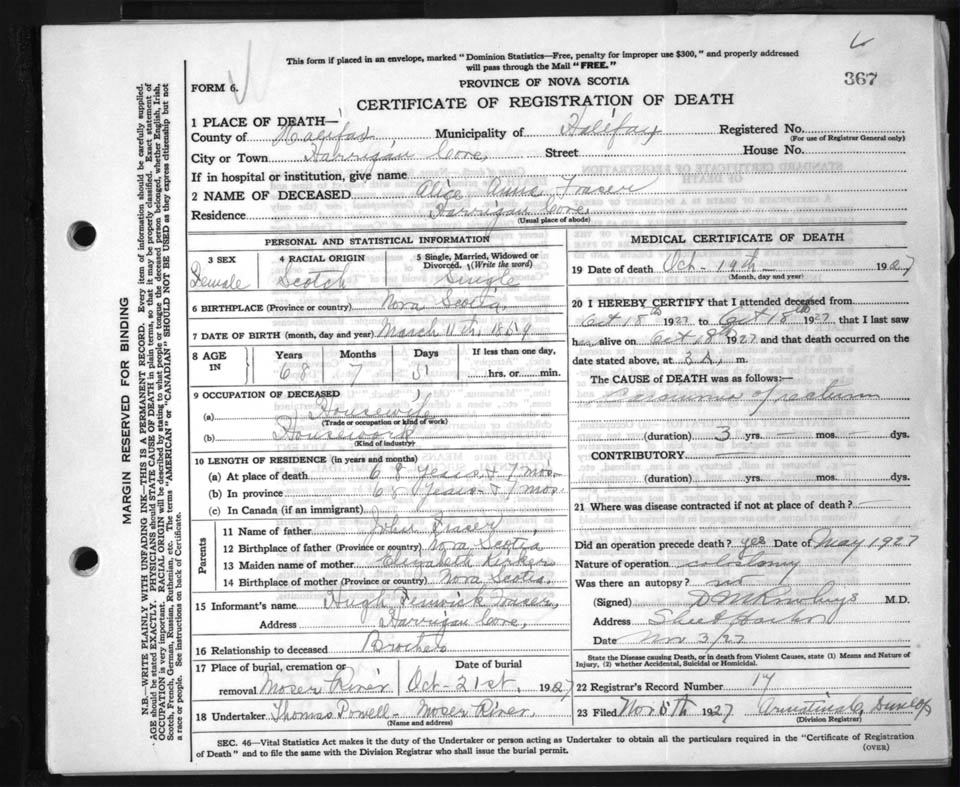 This form if placed in an envelope, marked "Dominion Statistics—Free, penalty for improper use $300," and properly addressed
will pass through the Mail "FREE."
367
FORM 6.
PROVINCE OF NOVA SCOTIA
CERTIFICATE OF REGISTRATION OF DEATH
1 PLACE OF DEATH—
County of Halifax Municipality of Halifax Registered No.
(For use of Registrar General only)
City or Town Harrigan Cove, Street House No.
If in hospital or institution, give name
2 NAME OF DECEASED Alice Annie Fraser
Residence Harrigan Cove
(Usual place of abode)
PERSONAL AND STATISTICAL INFORMATION
3 SEX 4 RACIAL ORIGIN 5 Single, Married, Widowed or
Divorced. (Write the word)
Female Scotch Single
6 BIRTHPLACE (Province or country) Nova Scotia,
7 DATE OF BIRTH (month, day and year) March 11th, 1859
8 AGE IN Years Months Days If less than one day,
68 7 hrs. or min.
9 OCCUPATION OF DECEASED
(a) Housewife
(Trade or occupation or kind of work)
(b) Housework
(Kind of industry)
10 LENGTH OF RESIDENCE (in years and months)
(a) At place of death 68 years & 7 mos.
(b) In province 68 years & 7 mos.
(c) In Canada (if an immigrant)
Parents
11 Name of father John Fraser
12 Birthplace of father (Province or country) Nova Scotia
13 Maiden name of mother Elizabeth
14 Birthplace of mother (Province or country) Nova Scotia.
15 Informant's name Hugh Fenwick Fraser,
Address Harrigan Cove,
16 Relationship to deceased Brother
17 Place of burial, cremation or removal Date of burial
Moser River Oct-21st, 1927
18 Undertaker Thomas Powell - Moser River,
(Name and address)
MEDICAL CERTIFICATE OF DEATH
19 Date of death Oct-19th 1927
(Month, day and year)
20 I HEREBY CERTIFY that I attended deceased from
Oct 18th 1927 to Oct 18th 1927 that I last saw
her alive on Oct 18 1927 and that death occurred on the
date stated above, at m.
The CAUSE of DEATH was as follows:—
Carcinoma of rectum
(duration) 3 yrs. — mos. dys.
CONTRIBUTORY —
(duration) yrs. mos. dys.
21 Where was disease contracted if not at place of death?
Did an operation precede death? yes Date of May 1927
Nature of operation colostomy
Was there an autopsy? no
(Signed) M.D.
Address Sheet Harbor
Date Nov 3/27
State the Disease causing Death, or in death from Violent Causes, state (1) Means and Nature of
Injury, (2) whether Accidental, Suicidal or Homicidal.
22 Registrar's Record Number 17
23 Filed Nov 1927 Dunlop
(Division Registrar)
SEC. 46—Vital Statistics Act makes it the duty of the Undertaker or person acting as Undertaker to obtain all the particulars required in the "Certificate of Registration
of Death" and to file the same with the Division Registrar who shall issue the burial permit.
(OVER)
MARGIN RESERVED FOR BINDING
N.B.—WRITE PLAINLY WITH UNFADING INK—THIS IS A PERMANENT RECORD. Every item of information should be carefully supplied.
AGE should be stated EXACTLY. PHYSICIANS should STATE CAUSE OF DEATH in plain terms, so that it may be properly classified. Exact statement of
OCCUPATION is very important. RACIAL ORIGIN will be described by stating to what people or tongue the deceased person belonged, whether English, Irish,
Scotch, French, German, Russian, Ruthenian, etc. The terms "AMERICAN" or "CANADIAN" SHOULD NOT BE USED as they express citizenship but not
a race or people. See instructions on back of Certificate.